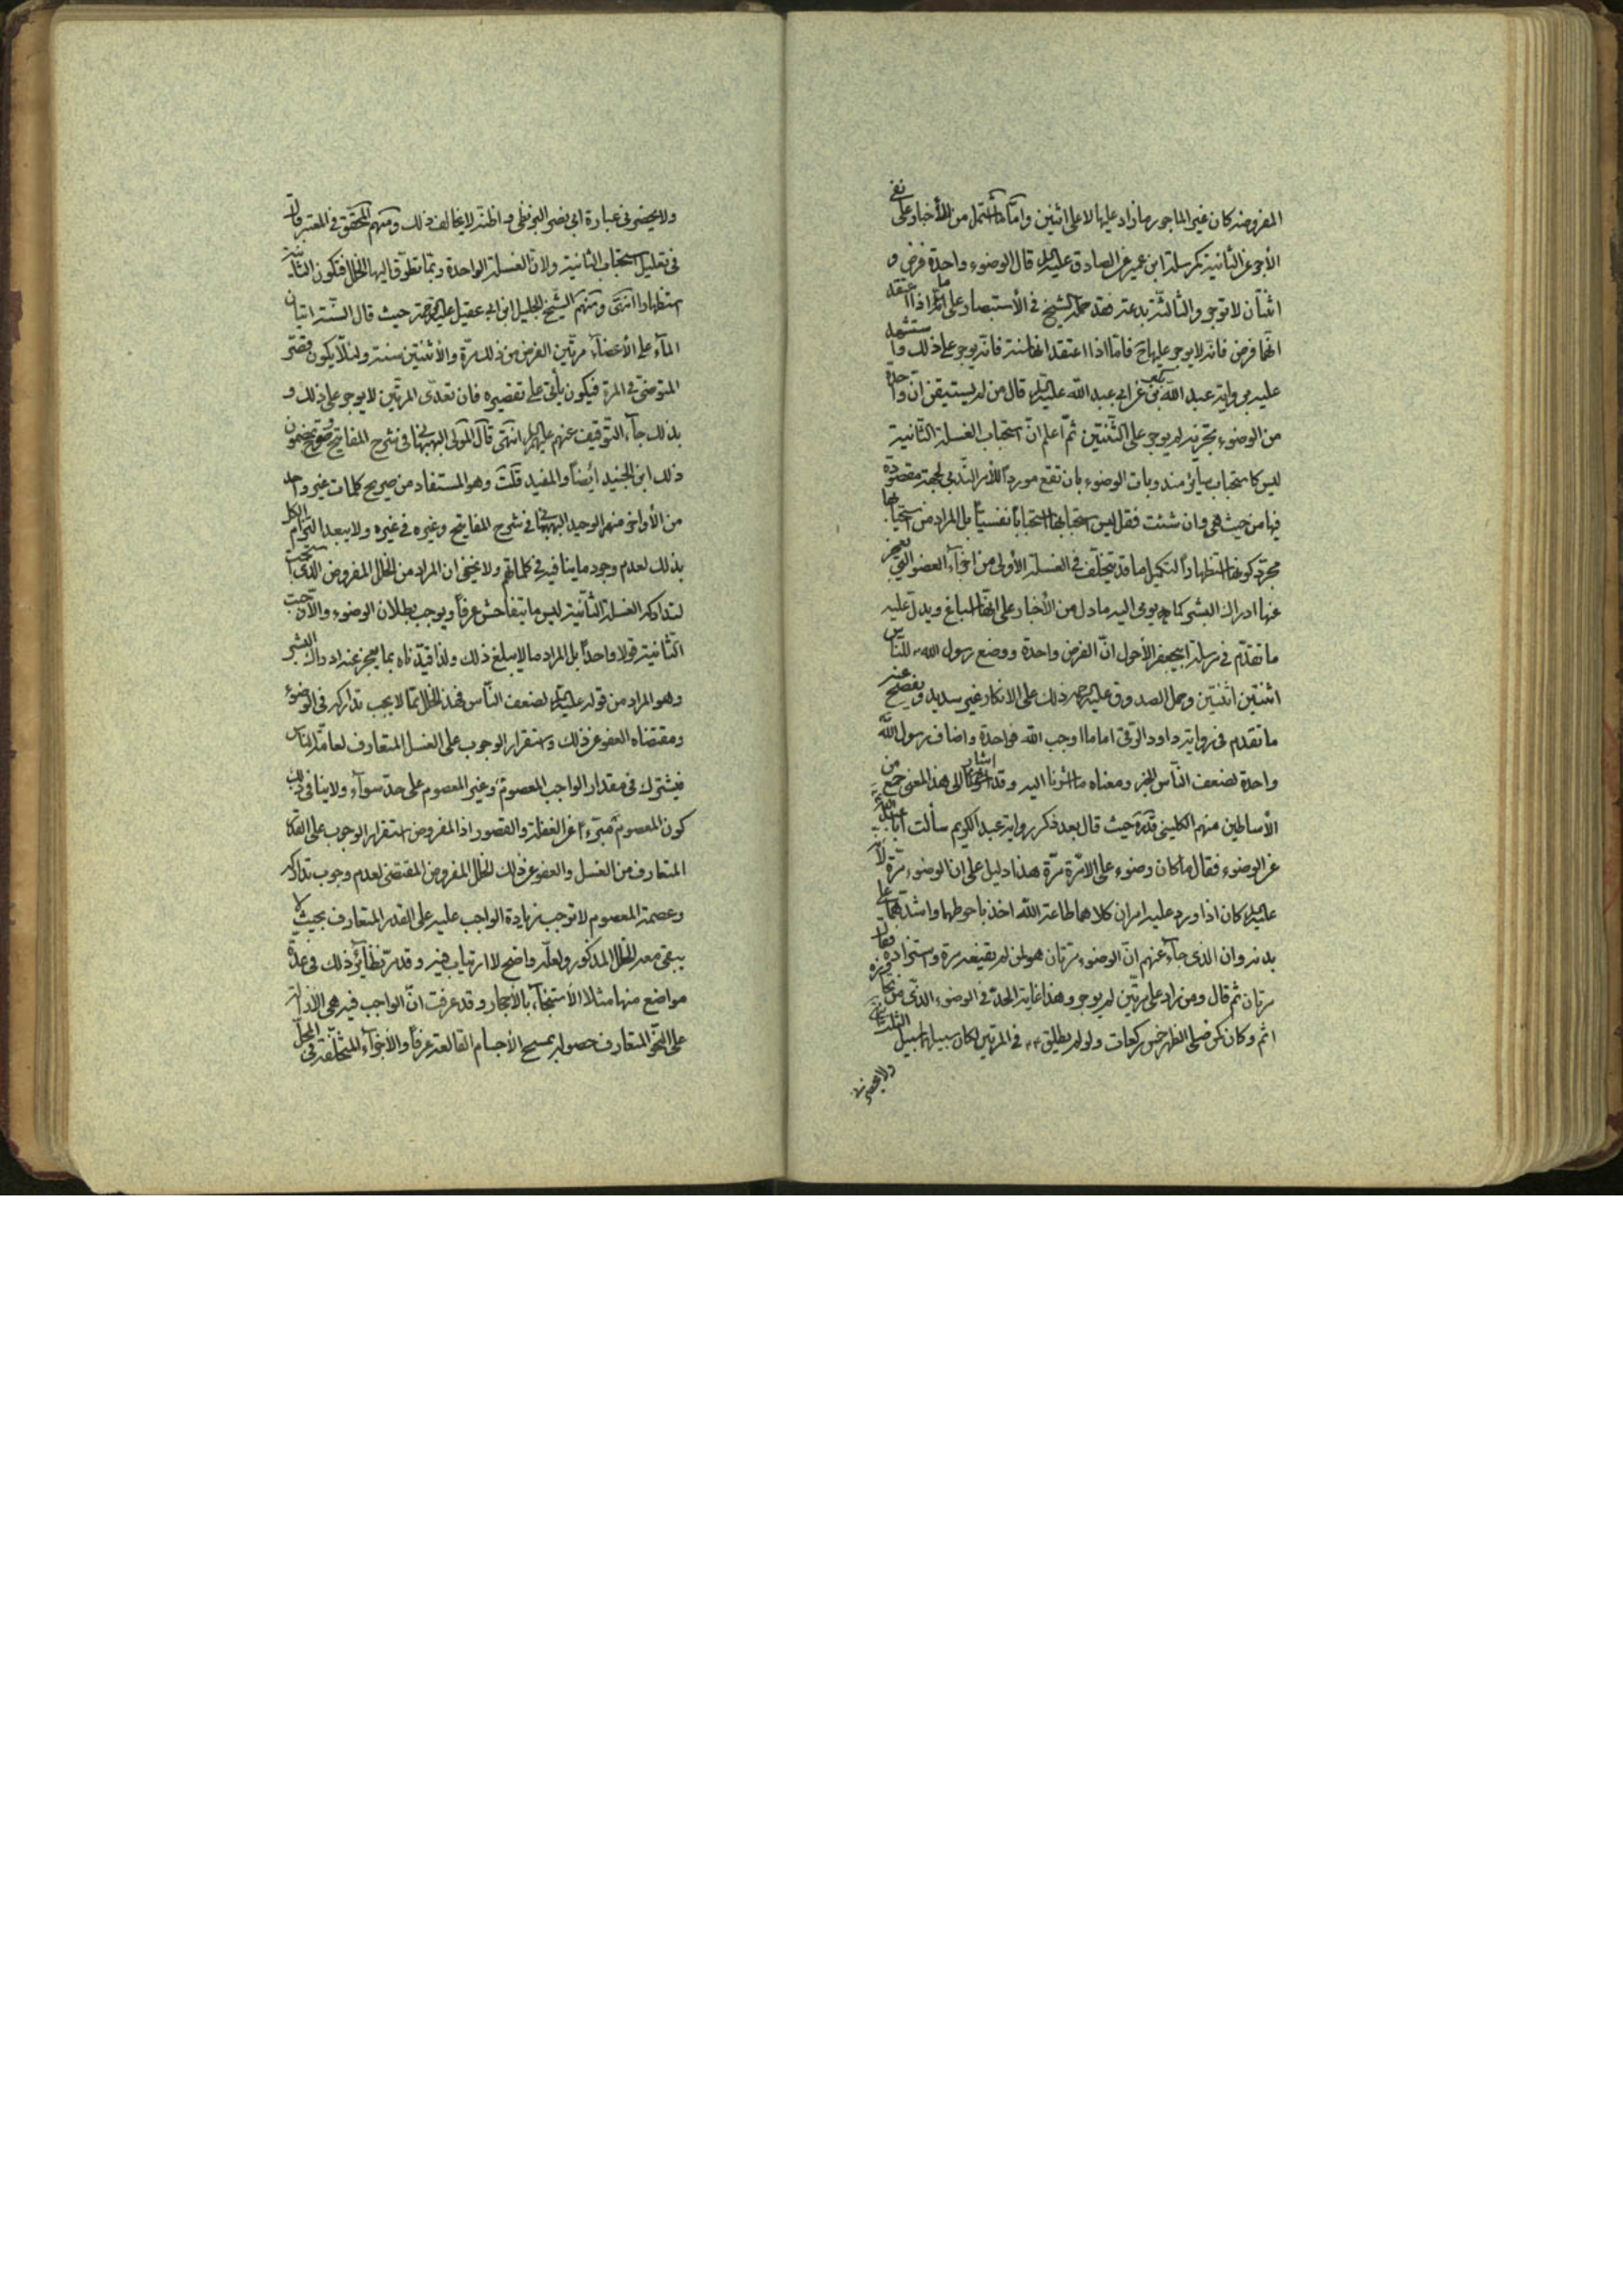 المفروضة كان غير الماجور ما زاد عليها لا على اثنين وامّا ما اشتمل من الأخبار على نفي
الأجر عن الثانية كمرسلة ابن عمير عن الصادق عليه السلم قال الوضوء واحدة فرض و
اثنتان لا توجر والثالثة بدعة فقد حمله الشيخ في الأستبصار على ما اذا اعتقد
انّها فرض فانّه لا يوجر عليها فامّا اذا اعتقد انها سنة فانّه يوجر على ذلك واستشهد
عليه برواية عبد الله بن بكير عن ابي عبد الله عليه السلم قال من لم يستيقن انّ واحدة
من الوضوء تجزيه لم يوجر على الثنتين ثمّ اعلم انّ استحباب الغسلة الثانية
ليس كاستحباب سائر مندوبات الوضوء بان تقع مورداً للأمر النّدبي لجهة مقصودة
فيها من حيث هي وان شئت فقل ليس استحبابها استحباباً نفسيّاً بل المراد من استحبابها
مجرّد كونها استظهاراً لتكميل ما قد يتخلّف في الغسلة الأولى من اجزاء العضو التي يعجز
عنها ادراك البشر كما يومى اليه ما دل من الأخبار على انّها اسباغ ويدلّ عليه
ما تقدّم في مرسلة ابيجعفر الأحول انّ الفرض واحدة ووضع رسول الله للنّاس
اثنتين اثنتين وحمل الصدوق عليه الرحمه ذلك على الانكار غير سديد ويفصح عنه
ما تقدم في رواية داود الرقي اما ما اوجب الله فواحدة واضاف رسول الله
واحدة لضعف النّاس الخبر ومعناه ما اشرنا اليه وقد اشار الى هذا المعنى جمع من
الأساطين منهم الكليني قدّه حيث قال بعد ذكر رواية عبد الكريم سألت ابا عبد الله
عن الوضوء فقال ما كان وضوء على الّا مرّة مرّة هذا دليل على ان الوضوء مرّة لأنّه
عليه السلم كان اذا ورد عليه امران كلاهما طاعة الله اخذ باحوطهما واشدّهما على
بدنه وان الذى جاء عنهم انّ الوضوء مرّتان هو لمن لم يقنعه مرة واستزاده فقال
مرتان ثم قال ومن زاد على مرّتين لم يوجر وهذا غاية الحدّ في الوضوء الذّى من تجاوزه
اثم وكان كمن صلى الظهر خمس ركعات ولو لم يطلق في المرتين لكان سبيله سبيل الثلث
ولا يحضرني
ولا يحضرني عبارة ابي نصر البزنطي و اظنه لا يخالف ذلك ومنهم المحقّق في المعتبر قال
في تعليل استحباب الثانية ولانّ الغسلة الواحدة ربّما تطرّق اليها الخلل فتكون الثانية
استظهارا انتهى ومنهم الشّيخ الجليل ابن ابي عقيل عليه الرحمة حيث قال السّنة اتيان
الماء على الأعضاء مرتين الفرض من ذلك مرّة والاثنتين سنة ولئلّا يكون قصّر
المتوضئ في المرة فيكون يأتى على تقصيره فان تعدّى المرتين لا يوجر على ذلك و
بذلك جاء التوقيف عنهم عليهم السلم انتهى قال المولى البهبهاني في شرح المفاتيح وصرح بمضمون
ذلك ابن الجنيد أيضاً والمفيد قلت وهو المستفاد من صريح كلمات غير واحد
من الأواخر منهم الوحيد البهبهاني في شرح المفاتيح وغيره في غيره ولا يبعد التزام الكل
بذلك لعدم وجود ما ينافيه في كلماتهم ولا يخفى ان المراد من الخلل المفروض الّذى استحب
لتداركه الغسلة الثّانية ليس ما يتفاحش عرفاً ويوجب بطلان الوضوء والّا وجبت
الثّانية قولا واحداً بل المراد ما لا يبلغ ذلك ولذا قيدّناه بما يعجز عنه ادراك البشر
وهو المراد من قوله عليه السلم لضعف النّاس فهذا الخلل ممّا لا يجب تداركه في الوضوء
ومقتضاه العفو عن ذلك واستقرار الوجوب على الغسل المتعارف لعامّة النّاس
فيشترك في مقدار الواجب المعصوم وغير المعصوم على حدّ سواء ولا ينافي ذلك
كون المعصوم مبرّءً عن الغفلة والقصور اذ المفروض استقرار الوجوب على القدر
المتعارف من الغسل والعفو عن ذلك الخلل المفروض المقتضى لعدم وجوب تداركه
وعصمة المعصوم لا توجب زيادة الواجب عليه على القدر المتعارف بحيث لا
يبقى معه الخلل المذكور ولعلّه واضح لا ارتياب فيه وقد مرّ نظائر ذلك في عدّة
مواضع منها مثلا الأستنجاء بالأحجار وقد عرفت انّ الواجب فيه هي الازالة
على النحو المتعارف حصوله بمسح الأجسام القالعة عرفاً والأجزاء المتخلّفة في المحلّ